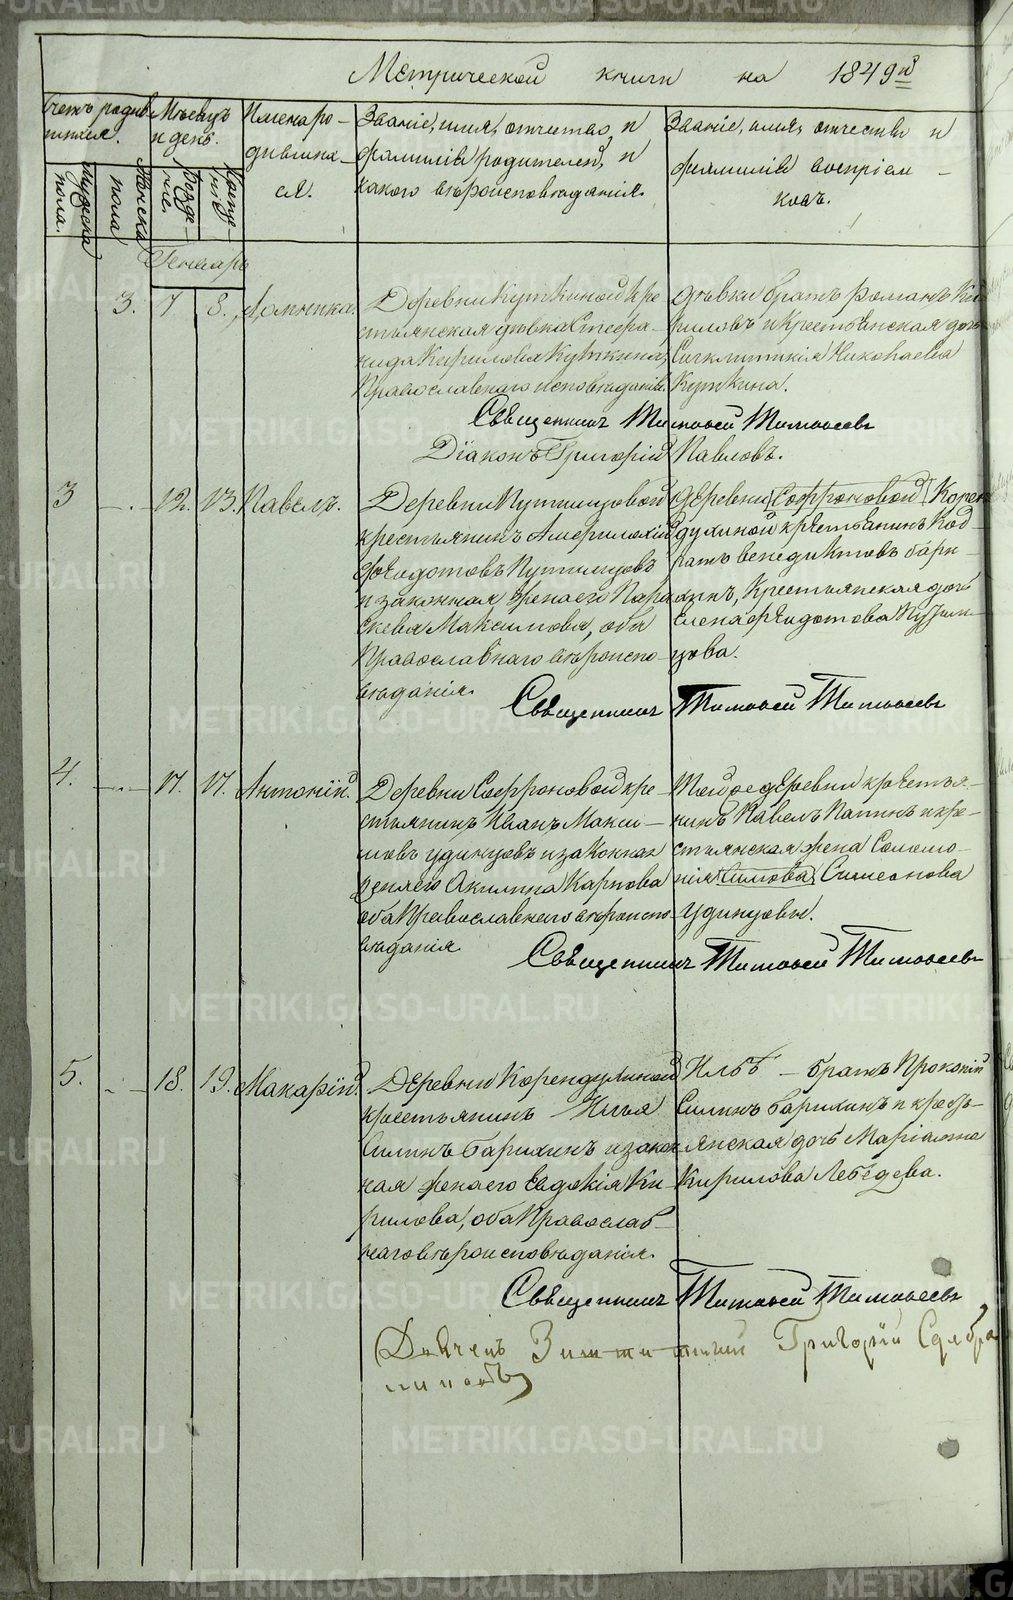 Метрической книги на 1849й
Счетъ родив-
шихся.
Мужеска
пола.
Женска
пола
Мѣсяцъ
и день.
Рожде-
ніе.
Креще-
ніе
Имена ро-
дившихъ-
ся.
Званіе, имя, отчество, и
фамилія родителей, и
какого вѣроисповѣданія.
Званіе, имя, отчество и
фамилія воспріем-
ковъ.
Генварь
3. 7 8. Домника.
Деревни Куткиной кре
стьянская дѣвка Стефа-
нида Кирилова Куткина,
Православнаго исповѣданія.
дѣвки братъ Романъ Ки
риловъ и Крестьянская дочь
Сигклитикія Николаева
Куткина.
Священникъ Тимофей Тимофеевъ
Діаконъ Григорій Павловъ.
3 12. 13. Павелъ.
Деревни Путимцовой
крестьянинъ Амфилохій
Федотовъ Путимцовъ
и законная жена его Пара
скева Максимова, оба
Православнаго вѣроиспо-
вѣданія.
деревни Софроновой Корен
духиной крестьянинъ Код-
ратъ Венедиктовъ Бари-
хинъ, Крестьянская дочь
Елена Федотова Путим-
цова.
Священникъ Тимофей Тимофеевъ
4. 17. 17. Антоній.
Деревни Софроновой кре-
стьянинъ Иванъ Макси-
мовъ Удинцовъ и законная
жена его Акилина Карпова
оба Православнаго вѣроиспо-
вѣданія
той же деревни крестья-
нинъ Павелъ Папинъ и кре-
стьянская жена Соломо-
нія Симеонова
Удинцовы.
Священникъ Тимофей Тимофеевъ
5. 18. 19. Макарій.
Деревни Корендухиной
крестьянинъ Илья
Силинъ Барихинъ и закон
ная жена его Евдокія Ки-
рилова, оба Православ-
наго вѣроисповѣданія.
Ильѣ - братъ Прокопій
Силинъ Барихинъ и кресть-
янская дочь Маріамна
Кирилова Лебедева.
Священникъ Тимофей Тимофеевъ
Григорій
METRIKI.GASO-URAL.RU